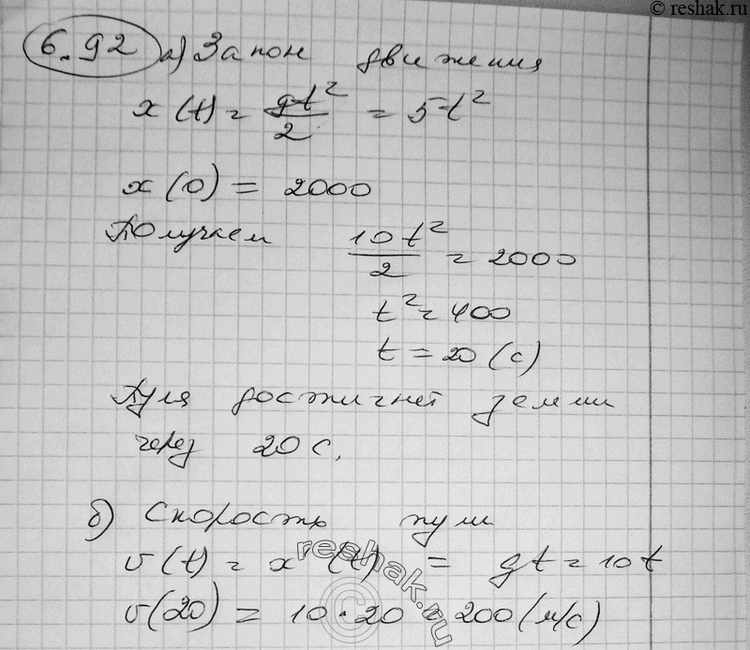 © reshak.ru
6.92 а) Закон движения
x(t) = gt²/2 = 5t²
x(0) = 2000
Получаем 10t²/2 = 2000
t² = 400
t = 20 (с)
Пуля достигнет земли
через 20 с.
б) Скорость пули
v(t) = x'(t) = gt = 10t
v(20) = 10·20 = 200 (м/с)
reshak.ru
©